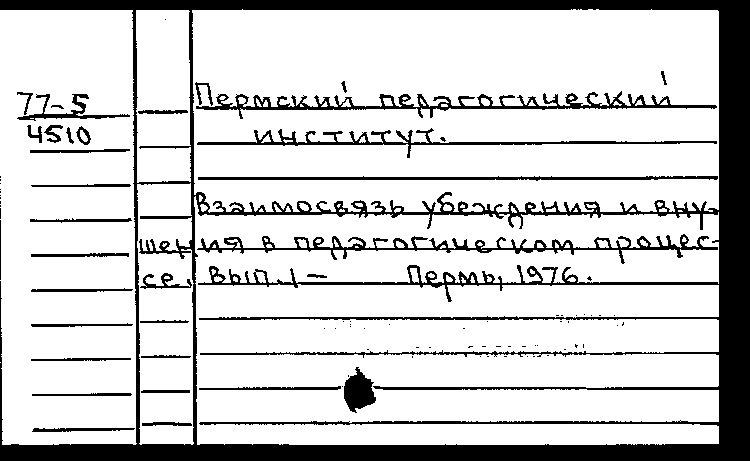 77-5
4510
Пермский педагогический
институт.
Взаимосвязь убеждения и вну-
шения в педагогическом процес-
се. Вып.1 – Пермь, 1976.